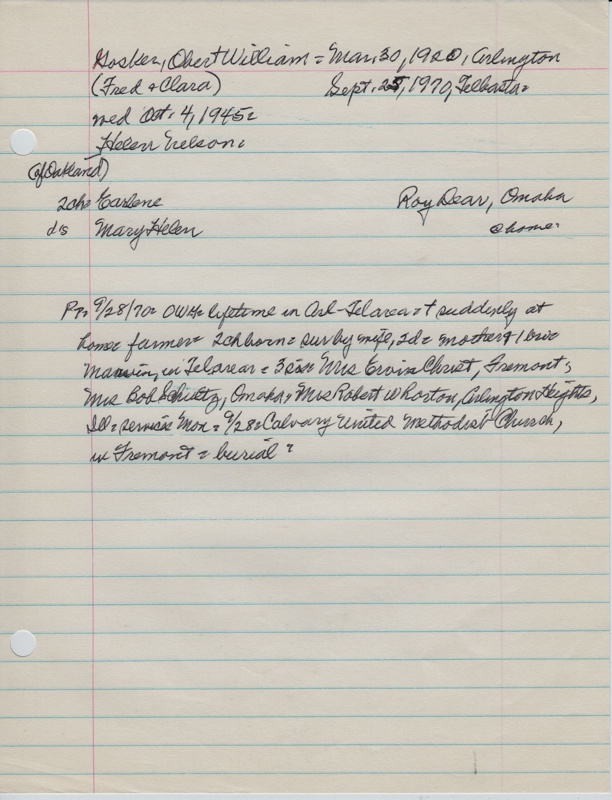 Gosker, Obert William = Mar. 30, 1920, Arlington
(Fred & Clara) Sept. 25, 1970, Telbasta=
wed Oct. 4, 1945=
Helen Nelson=
(of Oakland)
2ch= Earlene Roy Dear, Omaha
d's Mary Helen @home=
P.T. 9/28/70= OWH= lifetime in Arl-Tel area= + suddenly at
home= farmer= 2ch born= sur by wife, 2d= mother & 1 bro=
Marvin, in Tel area= 3 sis= Mrs Ervin Christ, Fremont,
Mrs Bob Schultz, Omaha, Mrs Robert Whorton, Arlington Heights,
Ill= services Mon= 9/28= Calvary United Methodist Church,
in Fremont= burial ?